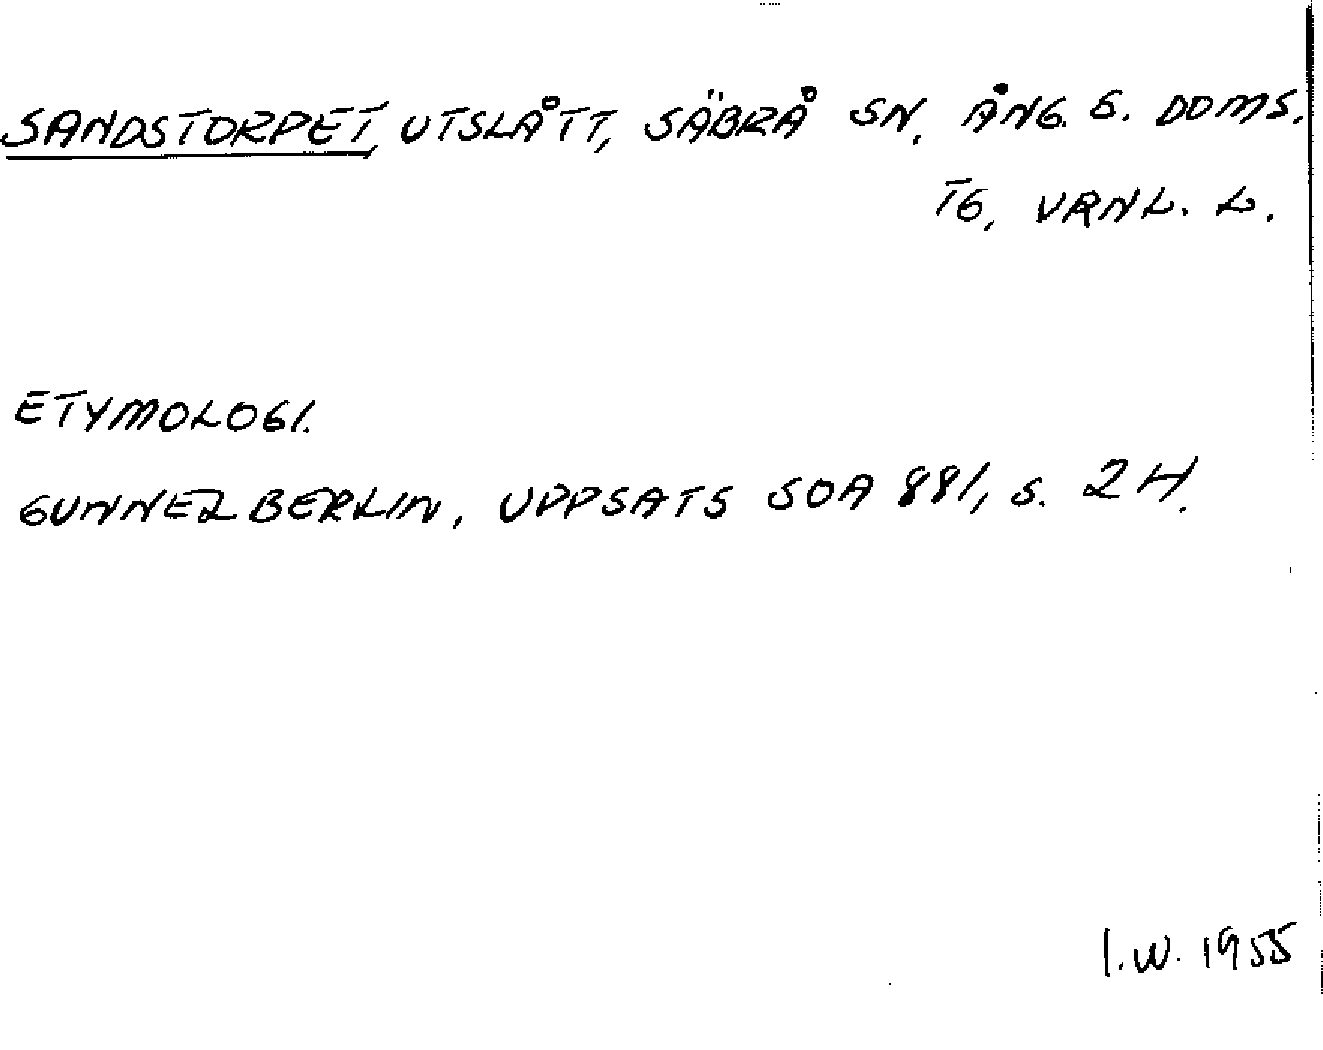 SANDSTORPET, UTSLÅTT, SÄBRÅ SN, ÅNG. S. DOMS.
TG, VRNL. L.
ETYMOLOGI.
GUNNEL BERLIN, UPPSATS SOA 881, S. 24.
I.W. 1955